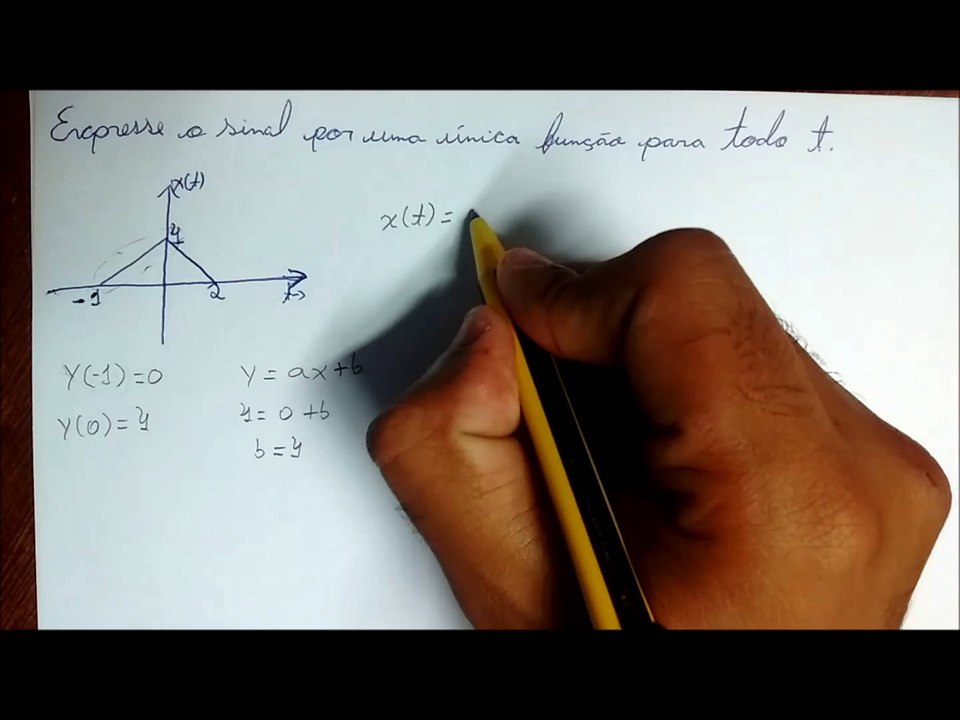 Expresse o sinal por uma única função para todo t.
x(t)
4
-1 2 t→
x(t) =
y(-1) = 0 y = ax + b
y(0) = 4 4 = 0 + b
b = 4